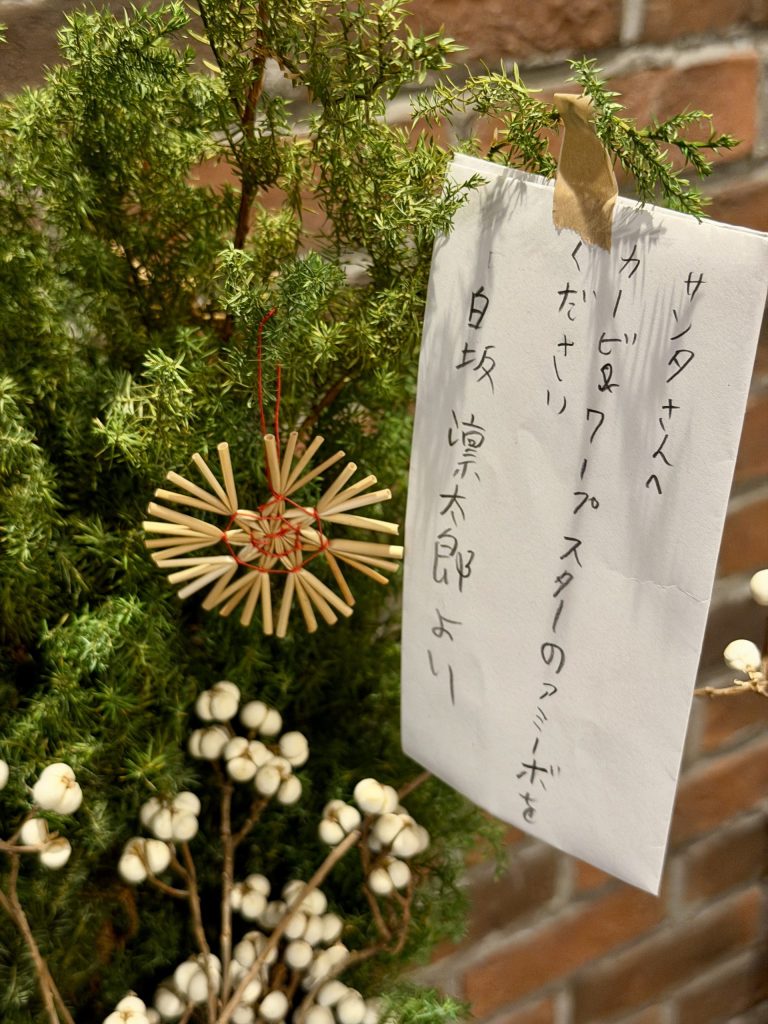 サンタさんへ
カービィ&ワープスターのアミーボを
ください
白坂 凛太郎より